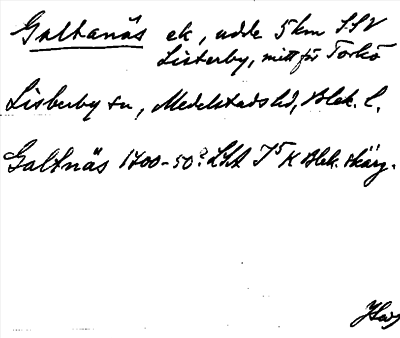 Galtanäs ek, udde 5 km SSV
Listerby, mitt för Torkö
Listerby sn, Medelstads hd, Blek. l.
Galtnäs 1700-50? LSA I5 K Blek. skärg.